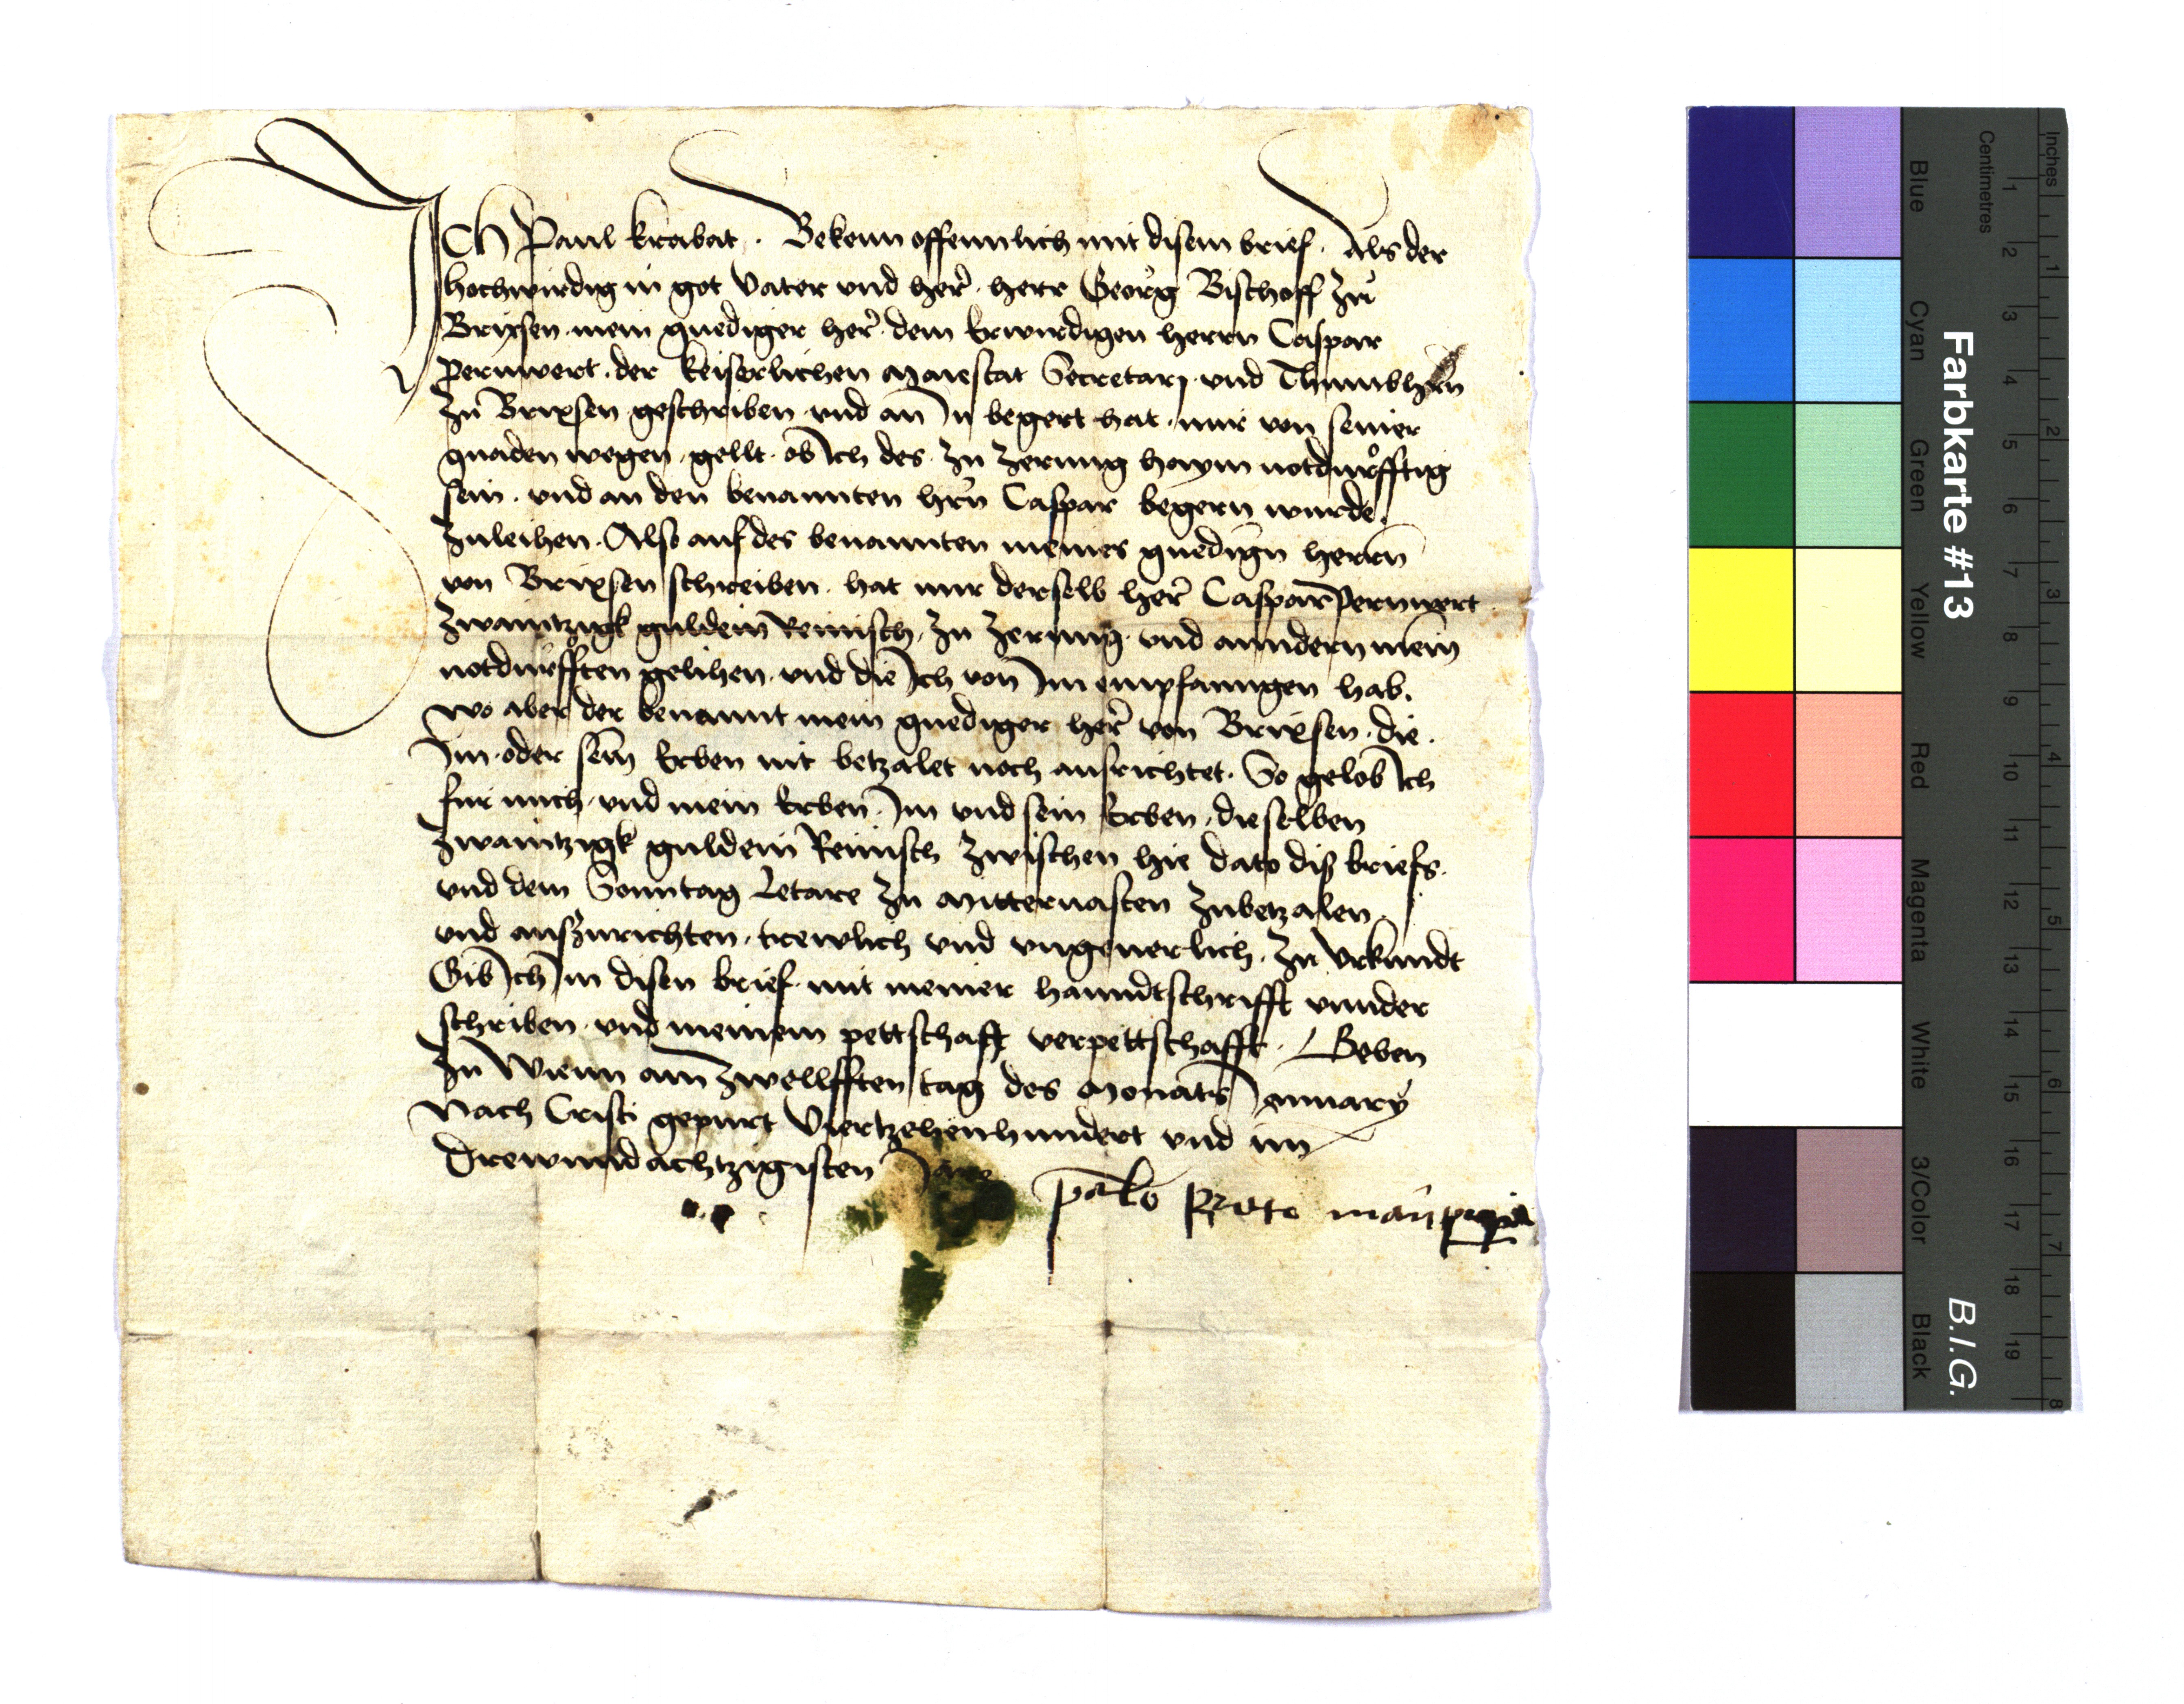 Ich Paul Krabat. Bekenn offennlich mit disem brief. Als der
hochwirdig in got Vater vnd her̃. herr Georg Bischoff zu
Brixsen mein gnediger her̃. dem Erwirdigen herrn Caspar
Pernwert. der keiserlichen Maiestat Secretarj vnd Thumbhrn
zu Brixsen geschriben vnd an In begert hat. mir von seiner
gnaden wegen gellt. ob Ich des zu zerung haym notdurfftig
sein. vnd an den benannten hrn Caspar begern wurde.
zuleihen. Also auf des benannten meines gnedign herrn
von Brixsen schreiben. hat mir derselb her̃ Caspar Pernwert
zwaintzigk guldein Reinisch, zu zerung. vnd anndern mein
notdurfften gelihen. vnd die Ich von Im empfanngen hab.
wo aber der benannt mein gnediger her̃ von Brixsen. die.
Im. oder sein Erben nit betzalet noch ausrichtet. So gelob Ich
fur mich. vnd mein Erben. Im vnd sein Erben. dieselben
zwaintzigk guldein Reinisch zwischen hie dato diß briefs.
vnd dem Sonntag Letare zu Mittervasten zubetzalen
vnd auszurichten. trewlich vnd vngeuerlich. Zu Vrkundt
Gib Ich Im disen brief. mit meiner hanndtschrifft vnnder
schriben. vnd meinem pettschafft verpettschafft. Geben
zu Wienn am zwellfften tag des Monats January
Nach Cristi gepurt Viertzehenhundert vnd im
Drewundachtzigisten Jare
manu propria
Farbkarte #13
B.I.G.
Inches 1 2 3 4 5 6 7 8
Centimetres 1 2 3 4 5 6 7 8 9 10 11 12 13 14 15 16 17 18 19
Blue Cyan Green Yellow Red Magenta White 3/Color Black